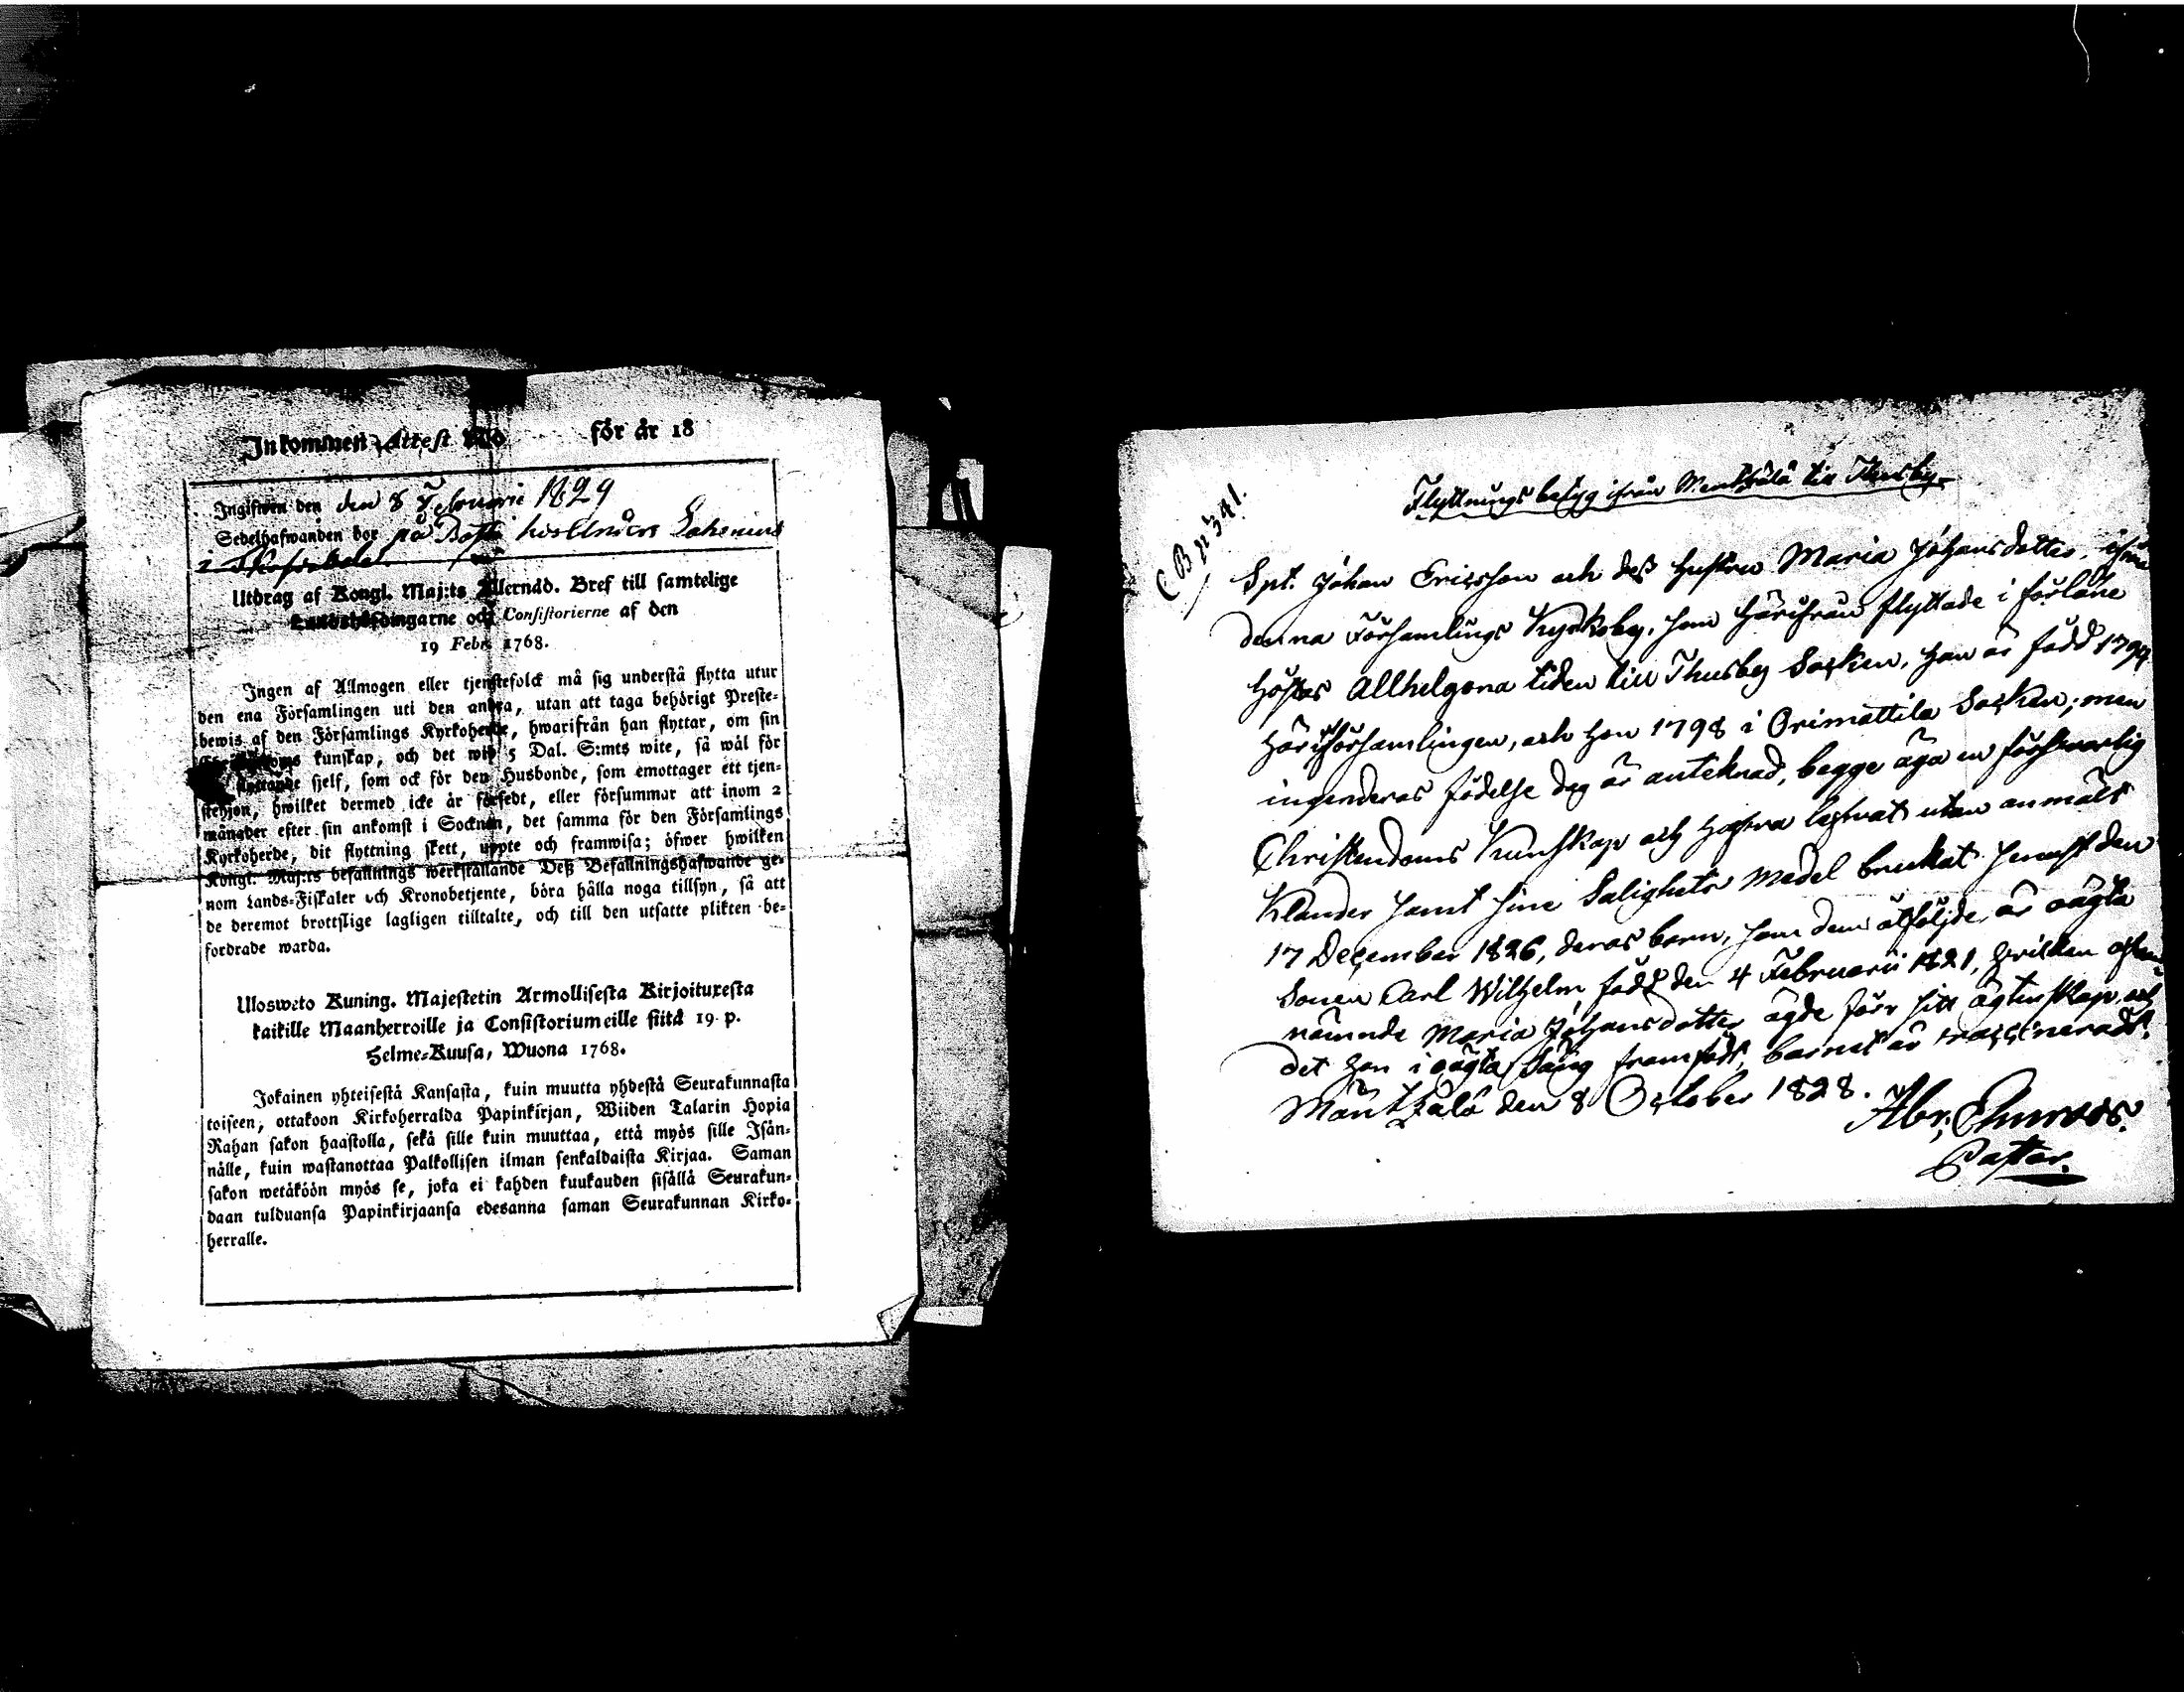 Inkommen Attest No för år 18
Ingifwen den den 8 Februarii 1829
Sedelhafwanden bor på hos Anders
i
Utdrag af Kongl. Maj:ts Allernåd. Bref till samtelige
Landshöfdingarne och Consistorierne af den
19 Febr. 1768.
Ingen af Allmogen eller tjenstefolck må sig understå flytta utur
den ena Församlingen uti den andra, utan att taga behörigt Preste-
bewis af den Församlings Kyrkoherde, hwarifrån han flyttar, om sin
kunskap, och det wid 5 Dal. S:mts wite, så wäl för
flyttande sjelf, som ock för den Husbonde, som emottager ett tjen-
stehjon, hwilket dermed icke är försedt, eller försummar att inom 2
månader efter sin ankomst i Socknen, det samma för den Församlings
Kyrkoherde, dit flyttning skett, uppte och framwisa; öfwer hwilken
Kongl. Maj:ts befallnings werkställande Deß Befallningshafwande ge-
nom Lands-Fiskaler och Kronobetjente, böra hålla noga tillsyn, så att
de deremot brottslige lagligen tilltalte, och till den utsatte plikten be-
fordrade warda.
Ulosweto Kuning. Majestetin Armollisesta Kirjoituxesta
kaikille Maanherroille ja Consistoriumeille siitä 19 p.
Helme-Kuusa, Wuona 1768.
Jokainen yhteisestä Kansasta, kuin muutta yhdestä Seurakunnasta
toiseen, ottakoon Kirkoherralda Papinkirjan, Wiiden Talarin Hopia
Rahan sakon haastolla, sekä sille kuin muuttaa, että myös sille Isän-
nälle, kuin wastanottaa Palkollisen ilman senkaldaista Kirjaa. Saman
sakon wetäköön myös se, joka ei kahden kuukauden sisällä Seurakun-
daan tulduansa Papinkirjaansa edesanna saman Seurakunnan Kirko-
herralle.
C B p 341.
Flyttnings betyg ifrån Mentzälä till Thusby
Spt. Johan Ericsson och deß Hustru Maria Johansdotter, ifrån
denna Församlings Kyrkoby, som härifrån flyttade i förlåne
Höstas Allhelgona tiden till Thusby Socken, han är född 1794
här i församlingen, och hon 1798 i Orimattila Socken; men
ingenderas födelse dag är anteknad, begge äga en försvarlig
Christendoms Kunskap och hafwa lefwat utan anmält
Klander samt sine Salighets medel brukat senast den
17 December 1826, deras barn, som dem åtföljde, är oägta
Sonen Carl Wilhelm född den 4 Februarii 1821, hvilken
nämnde Maria Johansdotter ägde förr sitt ägtenskap, och
det hon i oägta Säng framfödt, barnet är vaccineradt.
Mäntzälä den 8 October 1828.
Abr.
Pastor.